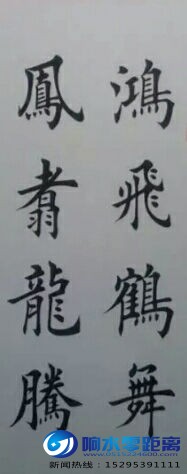 鴻飛鶴舞
鳳翥龍騰
响水零距离
新闻热线：15295391110